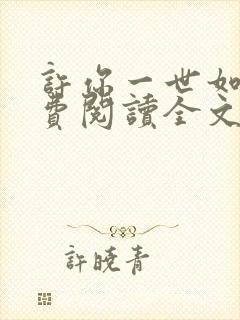 許你一世如
費閱讀全文
許曉青